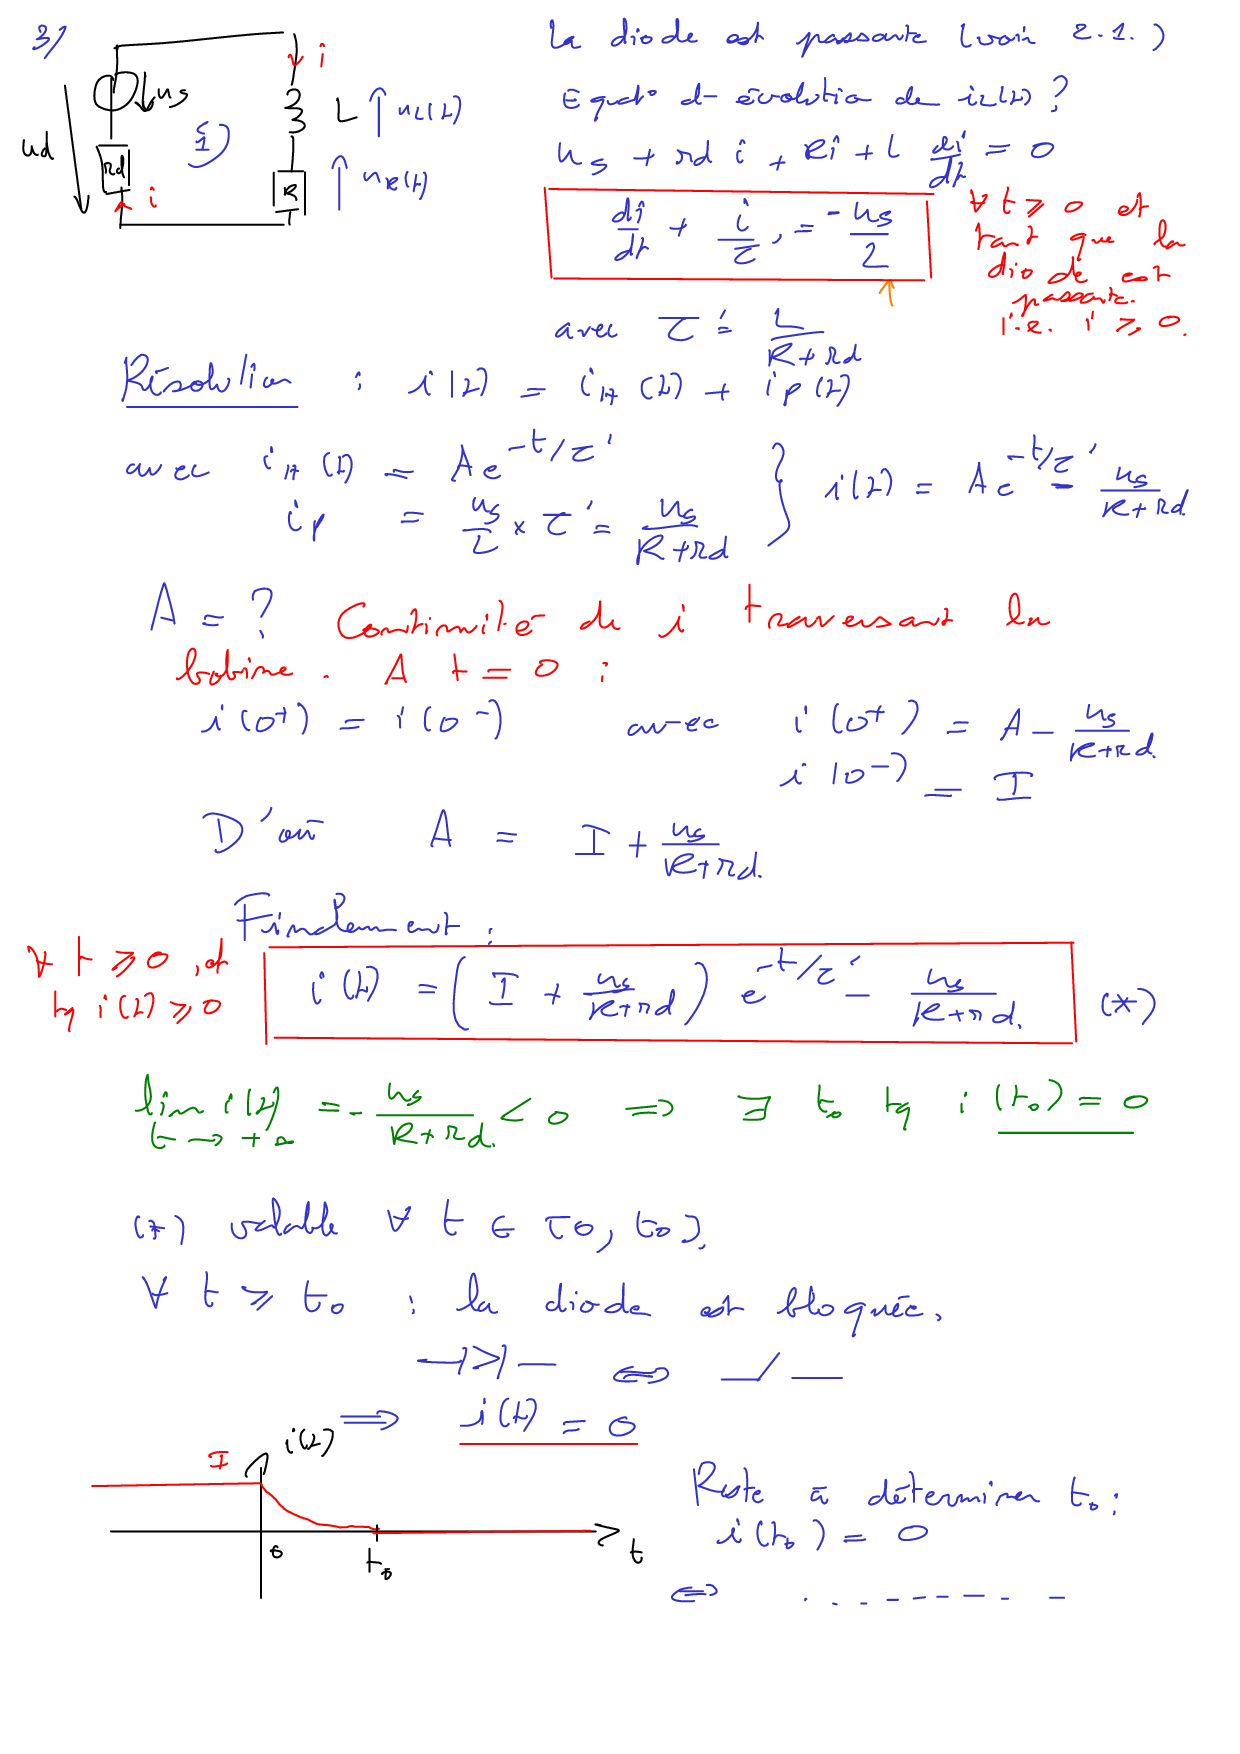 3)
i
us
L
uL(t)
ud
{1}
rd
i
R
uR(t)
La diode est passante (voir 2.1.)
Equat° d'évolution de iL(t) ?
us + rd i + Ri + L di/dt = 0
di/dt + i/τ' = - us/L
∀ t ≥ 0 et
tant que la
diode est
passante.
i.e. i ≥ 0.
avec τ' = L/(R+rd)
Résolution : i(t) = iH(t) + ip(t)
avec iH(t) = A e^(-t/τ')
ip = us/L × τ' = us/(R+rd)
} i(t) = A e^(-t/τ') - us/(R+rd)
A = ? Continuité de i traversant la
bobine. A t = 0 :
i(0+) = i(0-) avec i(0+) = A - us/(R+rd)
i(0-) = I
D'où A = I + us/(R+rd).
Finalement :
∀ t ≥ 0, et
tq i(t) ≥ 0
i(t) = (I + us/(R+rd)) e^(-t/τ') - us/(R+rd). (*)
lim i(t) = - us/(R+rd) < 0 ⇒ ∃ t0 tq i(t0) = 0
t → +∞
(*) valable ∀ t ∈ [0, t0].
∀ t ≥ t0 : la diode est bloquée.
⇔
⇒ i(t) = 0
I
i(t)
0
t0
t
Reste à déterminer t0 :
i(t0) = 0
⇔ . . - - - - - - -